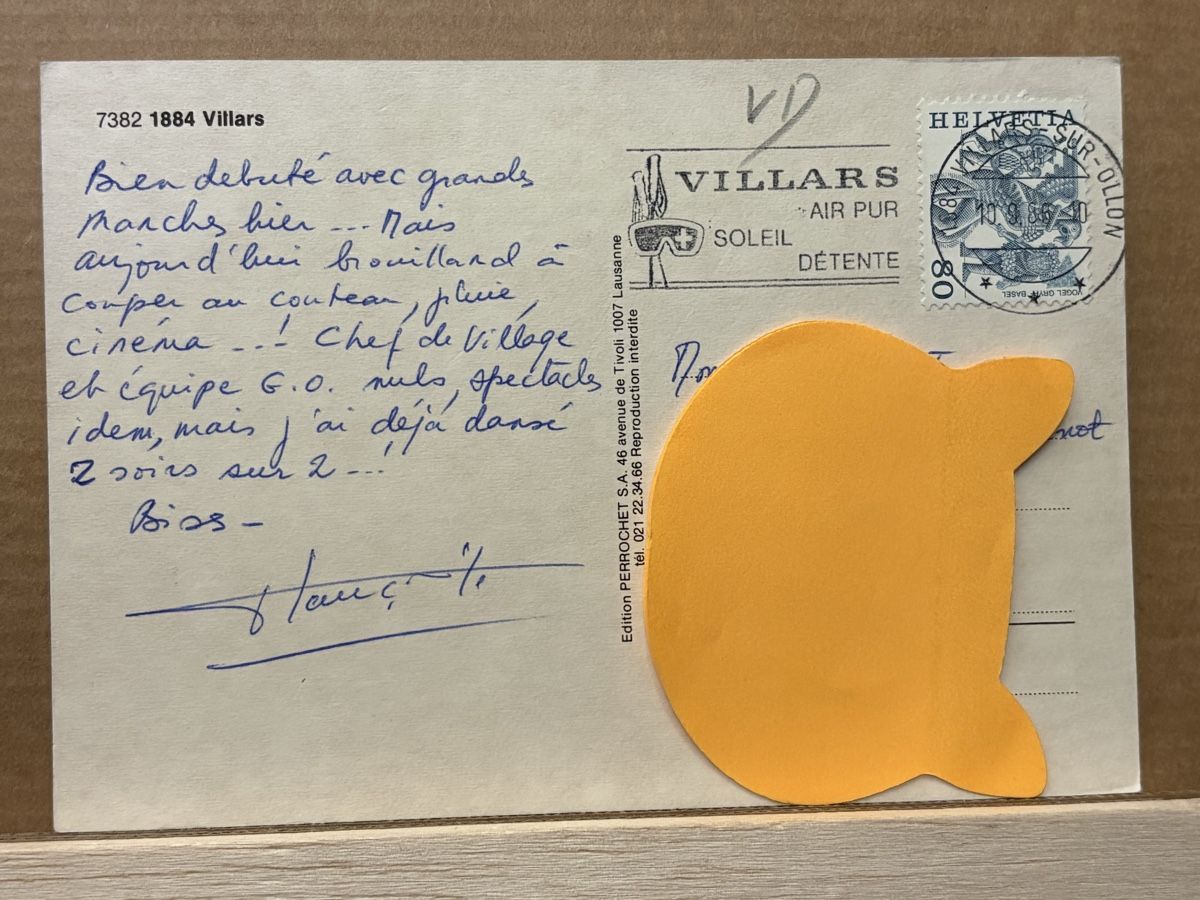 7382 1884 Villars
Bien debuté avec grandes
marches hier ... Mais
aujourd'hui brouillard à
couper au couteau, pluie,
cinéma ...! Chef de Village
et équipe G.O. nuls, spectacles
idem, mais j'ai déjà dansé
2 soirs sur 2 ...!
Bises -
VD
VILLARS
AIR PUR
SOLEIL
DÉTENTE
HELVETIA
80
VOGEL GRYFF BASEL
1884 VILLARS-SUR-OLLON
10.9.86.10
Edition PERROCHET S.A. 46 avenue de Tivoli 1007 Lausanne
tél. 021 22.34.66 Reproduction interdite